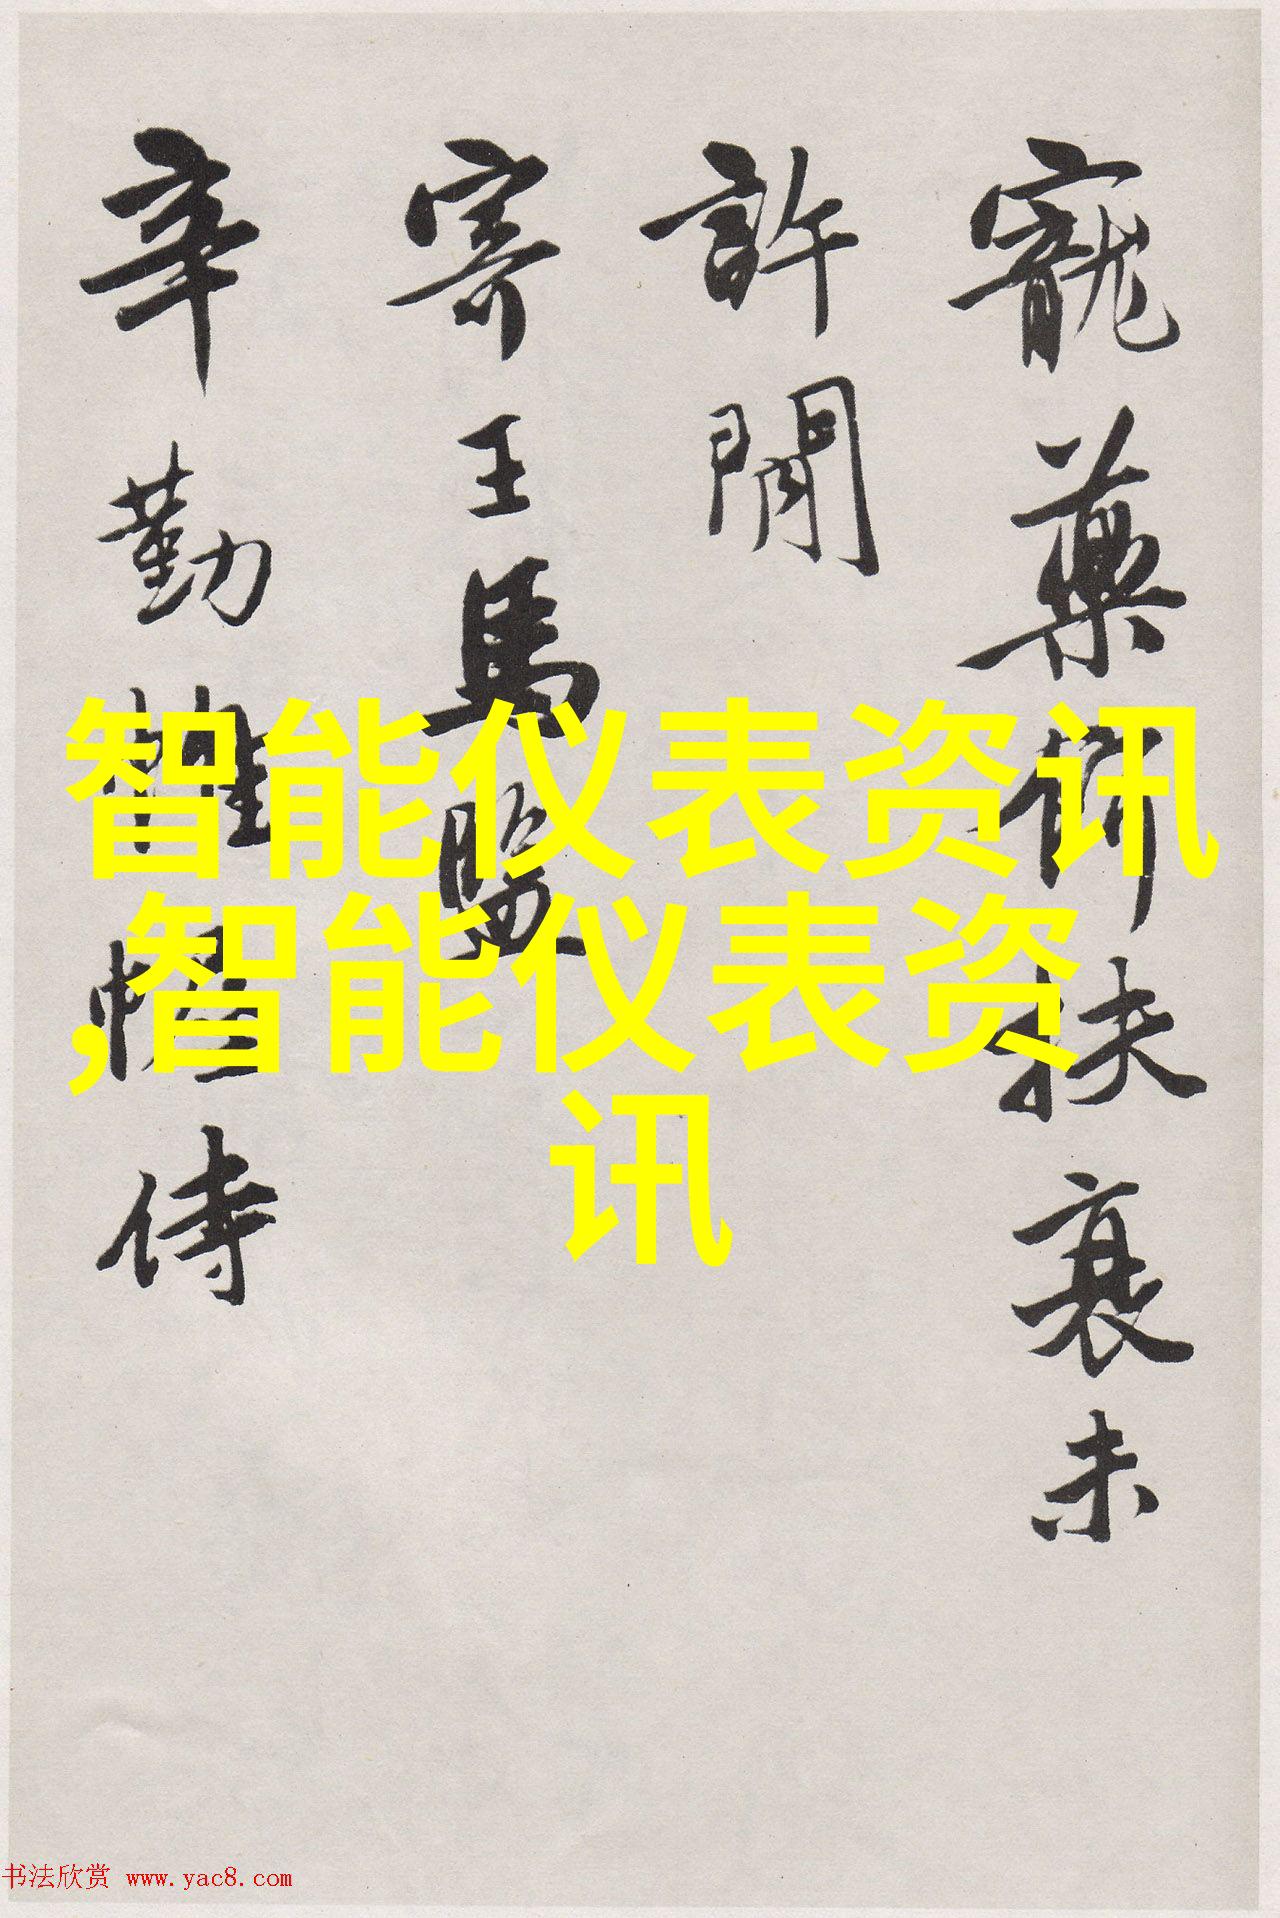 寵藥時扶衰未
許閒
寄王馬監
辛勤帷幄侍
智能仪表资讯
,智能仪表资
讯
书法欣赏 www.yac8.com